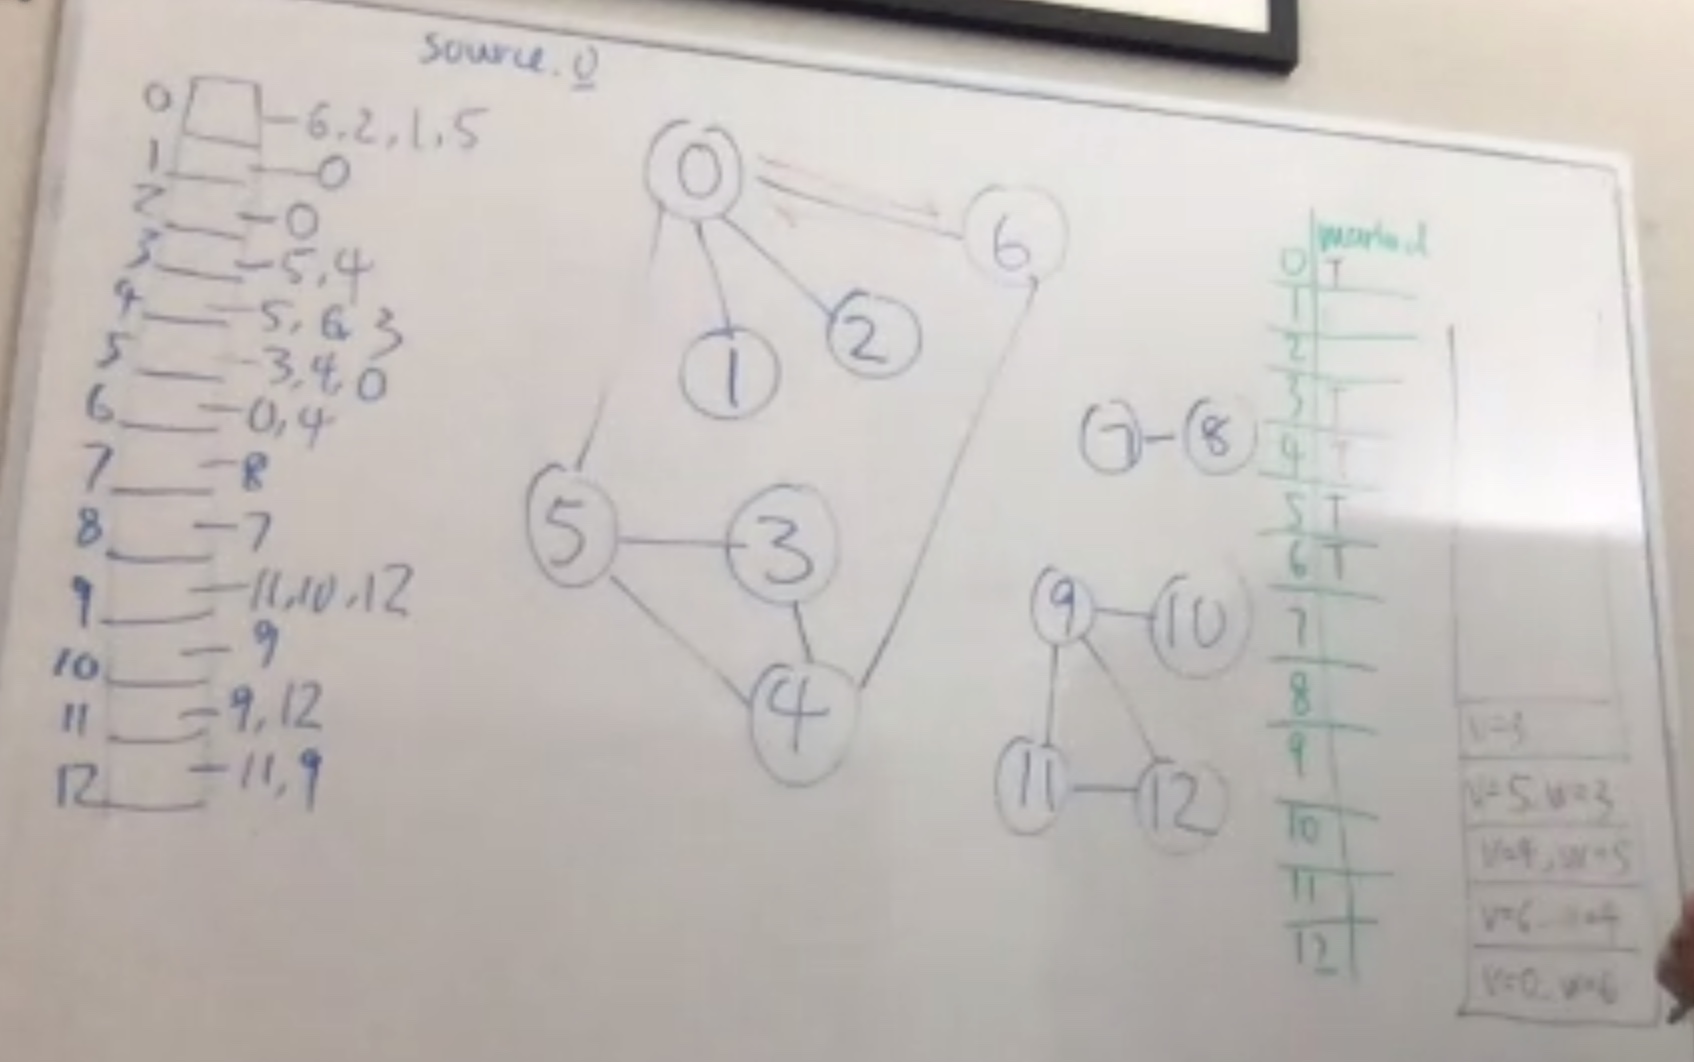 Source. 0
0 -6,2,1,5
1 -0
2 -0
3 -5,4
4 -5,6,3
5 -3,4,0
6 -0,4
7 -8
8 -7
9 -11,10,12
10 -9
11 -9,12
12 -11,9
0
6
1
2
7-8
5
3
4
9
10
11
12
marked
0 T
1
2
3 T
4 T
5 T
6 T
7
8
9
10
11
12
v=3
v=5 w=3
v=4, w=5
v=6 w=4
v=0 w=6